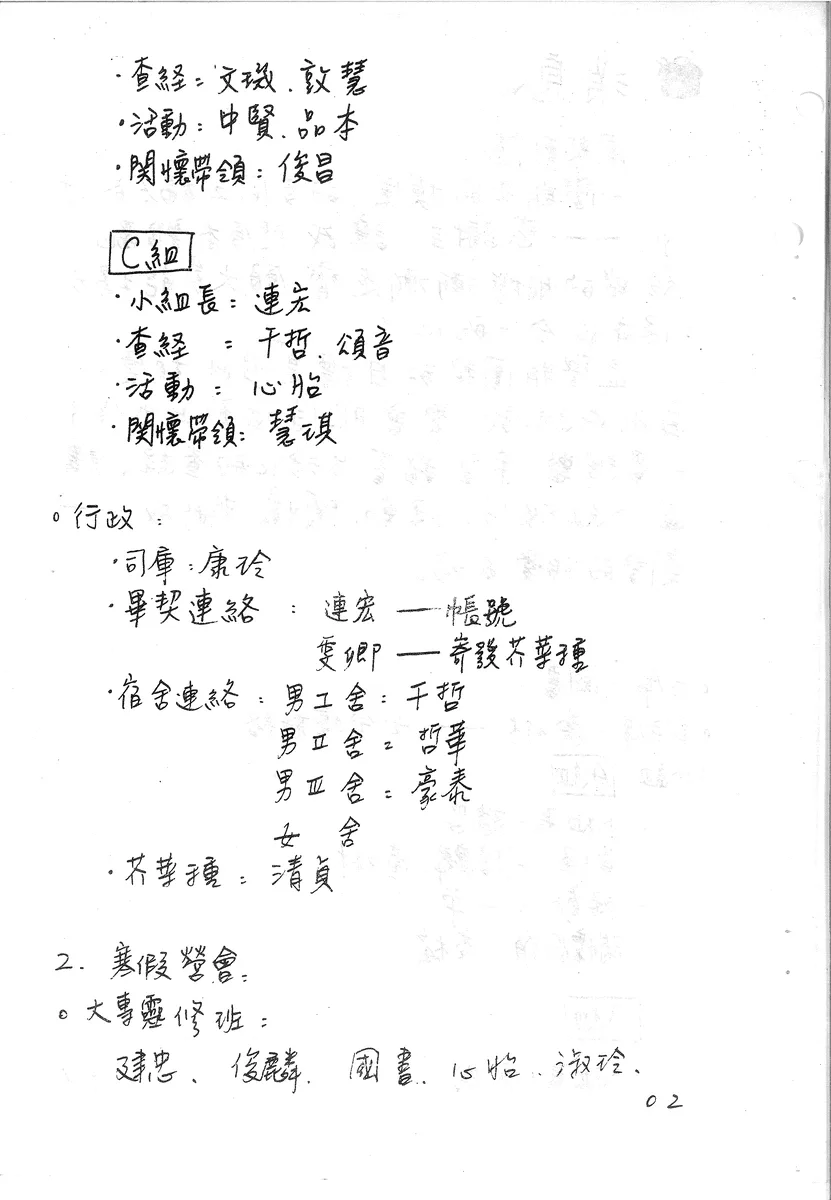 ·查経：文璣、敦慧
·活動：中賢、品本
·関懷帶領：俊昌
C組
·小組長：連宏
·查経：干哲、頌音
·活動：心胎
·関懷帶領：慧琪
○行政：
·司庫：康玲
·畢契連絡：連宏——帳號
雯卿——寄發芥菜種
·宿舍連絡：男I舍：干哲
男II舍：哲華
男III舍：豪泰
女 舍
·芥菜種：清貞
2. 寒假營會：
○大專靈修班：
建忠、俊麟、國書、心怡、淑玲、
02